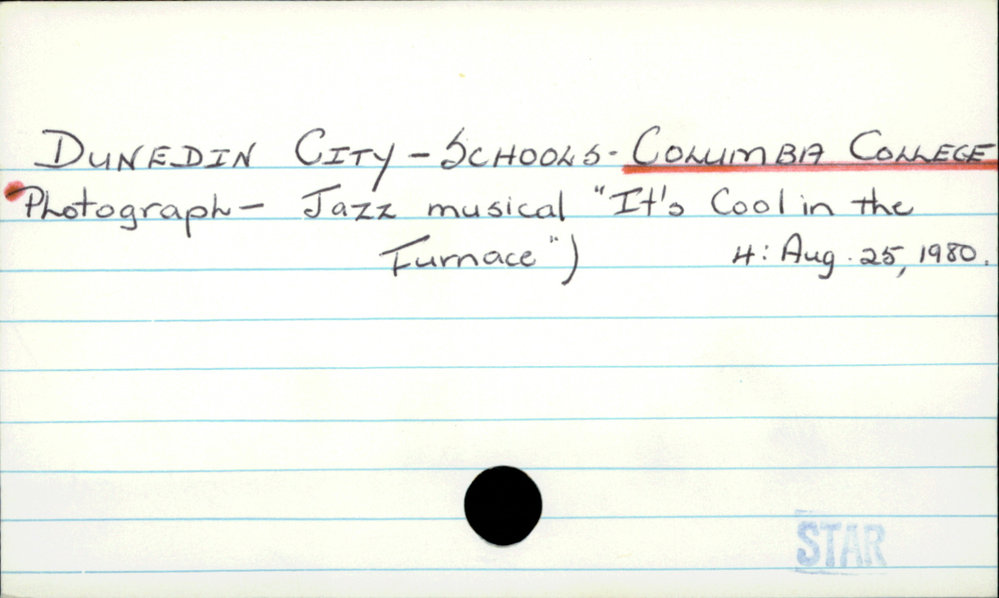 DUNEDIN CITY - SCHOOLS - COLUMBA COLLEGE
Photograph - Jazz musical "It's Cool in the
Furnace") 4: Aug. 25, 1980.
STAR